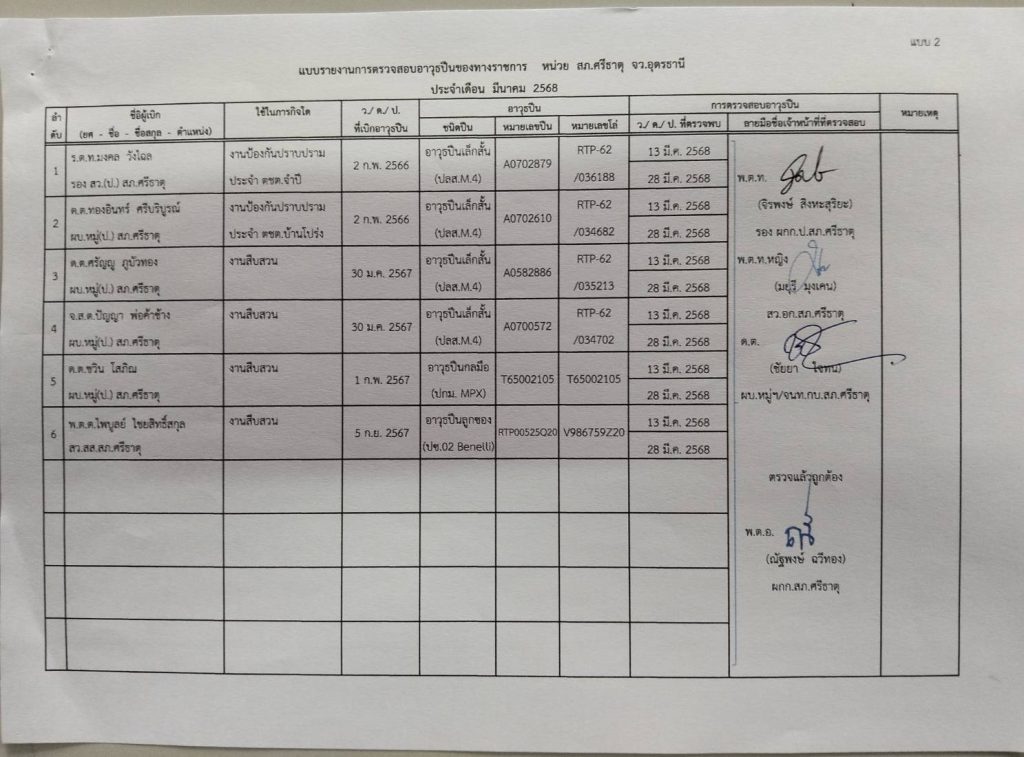 แบบ 2
แบบรายงานการตรวจสอบอาวุธปืนของทางราชการ หน่วย สภ.ศรีธาตุ จว.อุดรธานี
ประจำเดือน มีนาคม 2568
ลำดับ ชื่อผู้เบิก (ยศ - ชื่อ - ชื่อสกุล - ตำแหน่ง) ใช้ในภารกิจใด ว./ ด./ ป. ที่เบิกอาวุธปืน อาวุธปืน การตรวจสอบอาวุธปืน หมายเหตุ
ชนิดปืน หมายเลขปืน หมายเลขโล่ ว./ ด./ ป. ที่ตรวจพบ ลายมือชื่อเจ้าหน้าที่ที่ตรวจสอบ
1 ร.ต.ท.มงคล วังโฉล งานป้องกันปราบปราม 2 ก.พ. 2566 อาวุธปืนเล็กสั้น A0702879 RTP-62 13 มี.ค. 2568
รอง สว.(ป.) สภ.ศรีธาตุ ประจำ ตชต.จำปี (ปลส.M.4) /036188 28 มี.ค. 2568
2 ด.ต.ทองอินทร์ ศรีบริบูรณ์ งานป้องกันปราบปราม 2 ก.พ. 2566 อาวุธปืนเล็กสั้น A0702610 RTP-62 13 มี.ค. 2568
ผบ.หมู่(ป.) สภ.ศรีธาตุ ประจำ ตชต.บ้านโปร่ง (ปลส.M.4) /034682 28 มี.ค. 2568
3 ด.ต.ศรัญญู ภูบัวทอง งานสืบสวน 30 ม.ค. 2567 อาวุธปืนเล็กสั้น A0582886 RTP-62 13 มี.ค. 2568
ผบ.หมู่(ป.) สภ.ศรีธาตุ (ปลส.M.4) /035213 28 มี.ค. 2568
4 จ.ส.ต.ปัญญา พ่อค้าช้าง งานสืบสวน 30 ม.ค. 2567 อาวุธปืนเล็กสั้น A0700572 RTP-62 13 มี.ค. 2568
ผบ.หมู่(ป.) สภ.ศรีธาตุ (ปลส.M.4) /034702 28 มี.ค. 2568
5 ด.ต.ชวิน โสภิณ งานสืบสวน 1 ก.พ. 2567 อาวุธปืนกลมือ T65002105 T65002105 13 มี.ค. 2568
ผบ.หมู่(ป.) สภ.ศรีธาตุ (ปกม. MPX) 28 มี.ค. 2568
6 พ.ต.ต.ไพบูลย์ ไชยสิทธิ์สกุล งานสืบสวน 5 ก.ย. 2567 อาวุธปืนลูกซอง RTP00525Q20 V986759Z20 13 มี.ค. 2568
สว.สส.สภ.ศรีธาตุ (ปซ.02 Benelli) 28 มี.ค. 2568
พ.ต.ท.
(จิรพงษ์ สิงหะสุริยะ)
รอง ผกก.ป.สภ.ศรีธาตุ
พ.ต.ท.หญิง
(มยุรี มุงเคน)
สว.อก.สภ.ศรีธาตุ
ด.ต.
(ชัยยา ใจทน)
ผบ.หมู่ฯ/จนท.กบ.สภ.ศรีธาตุ
ตรวจแล้วถูกต้อง
พ.ต.อ.
(ณัฐพงษ์ ฉวีทอง)
ผกก.สภ.ศรีธาตุ